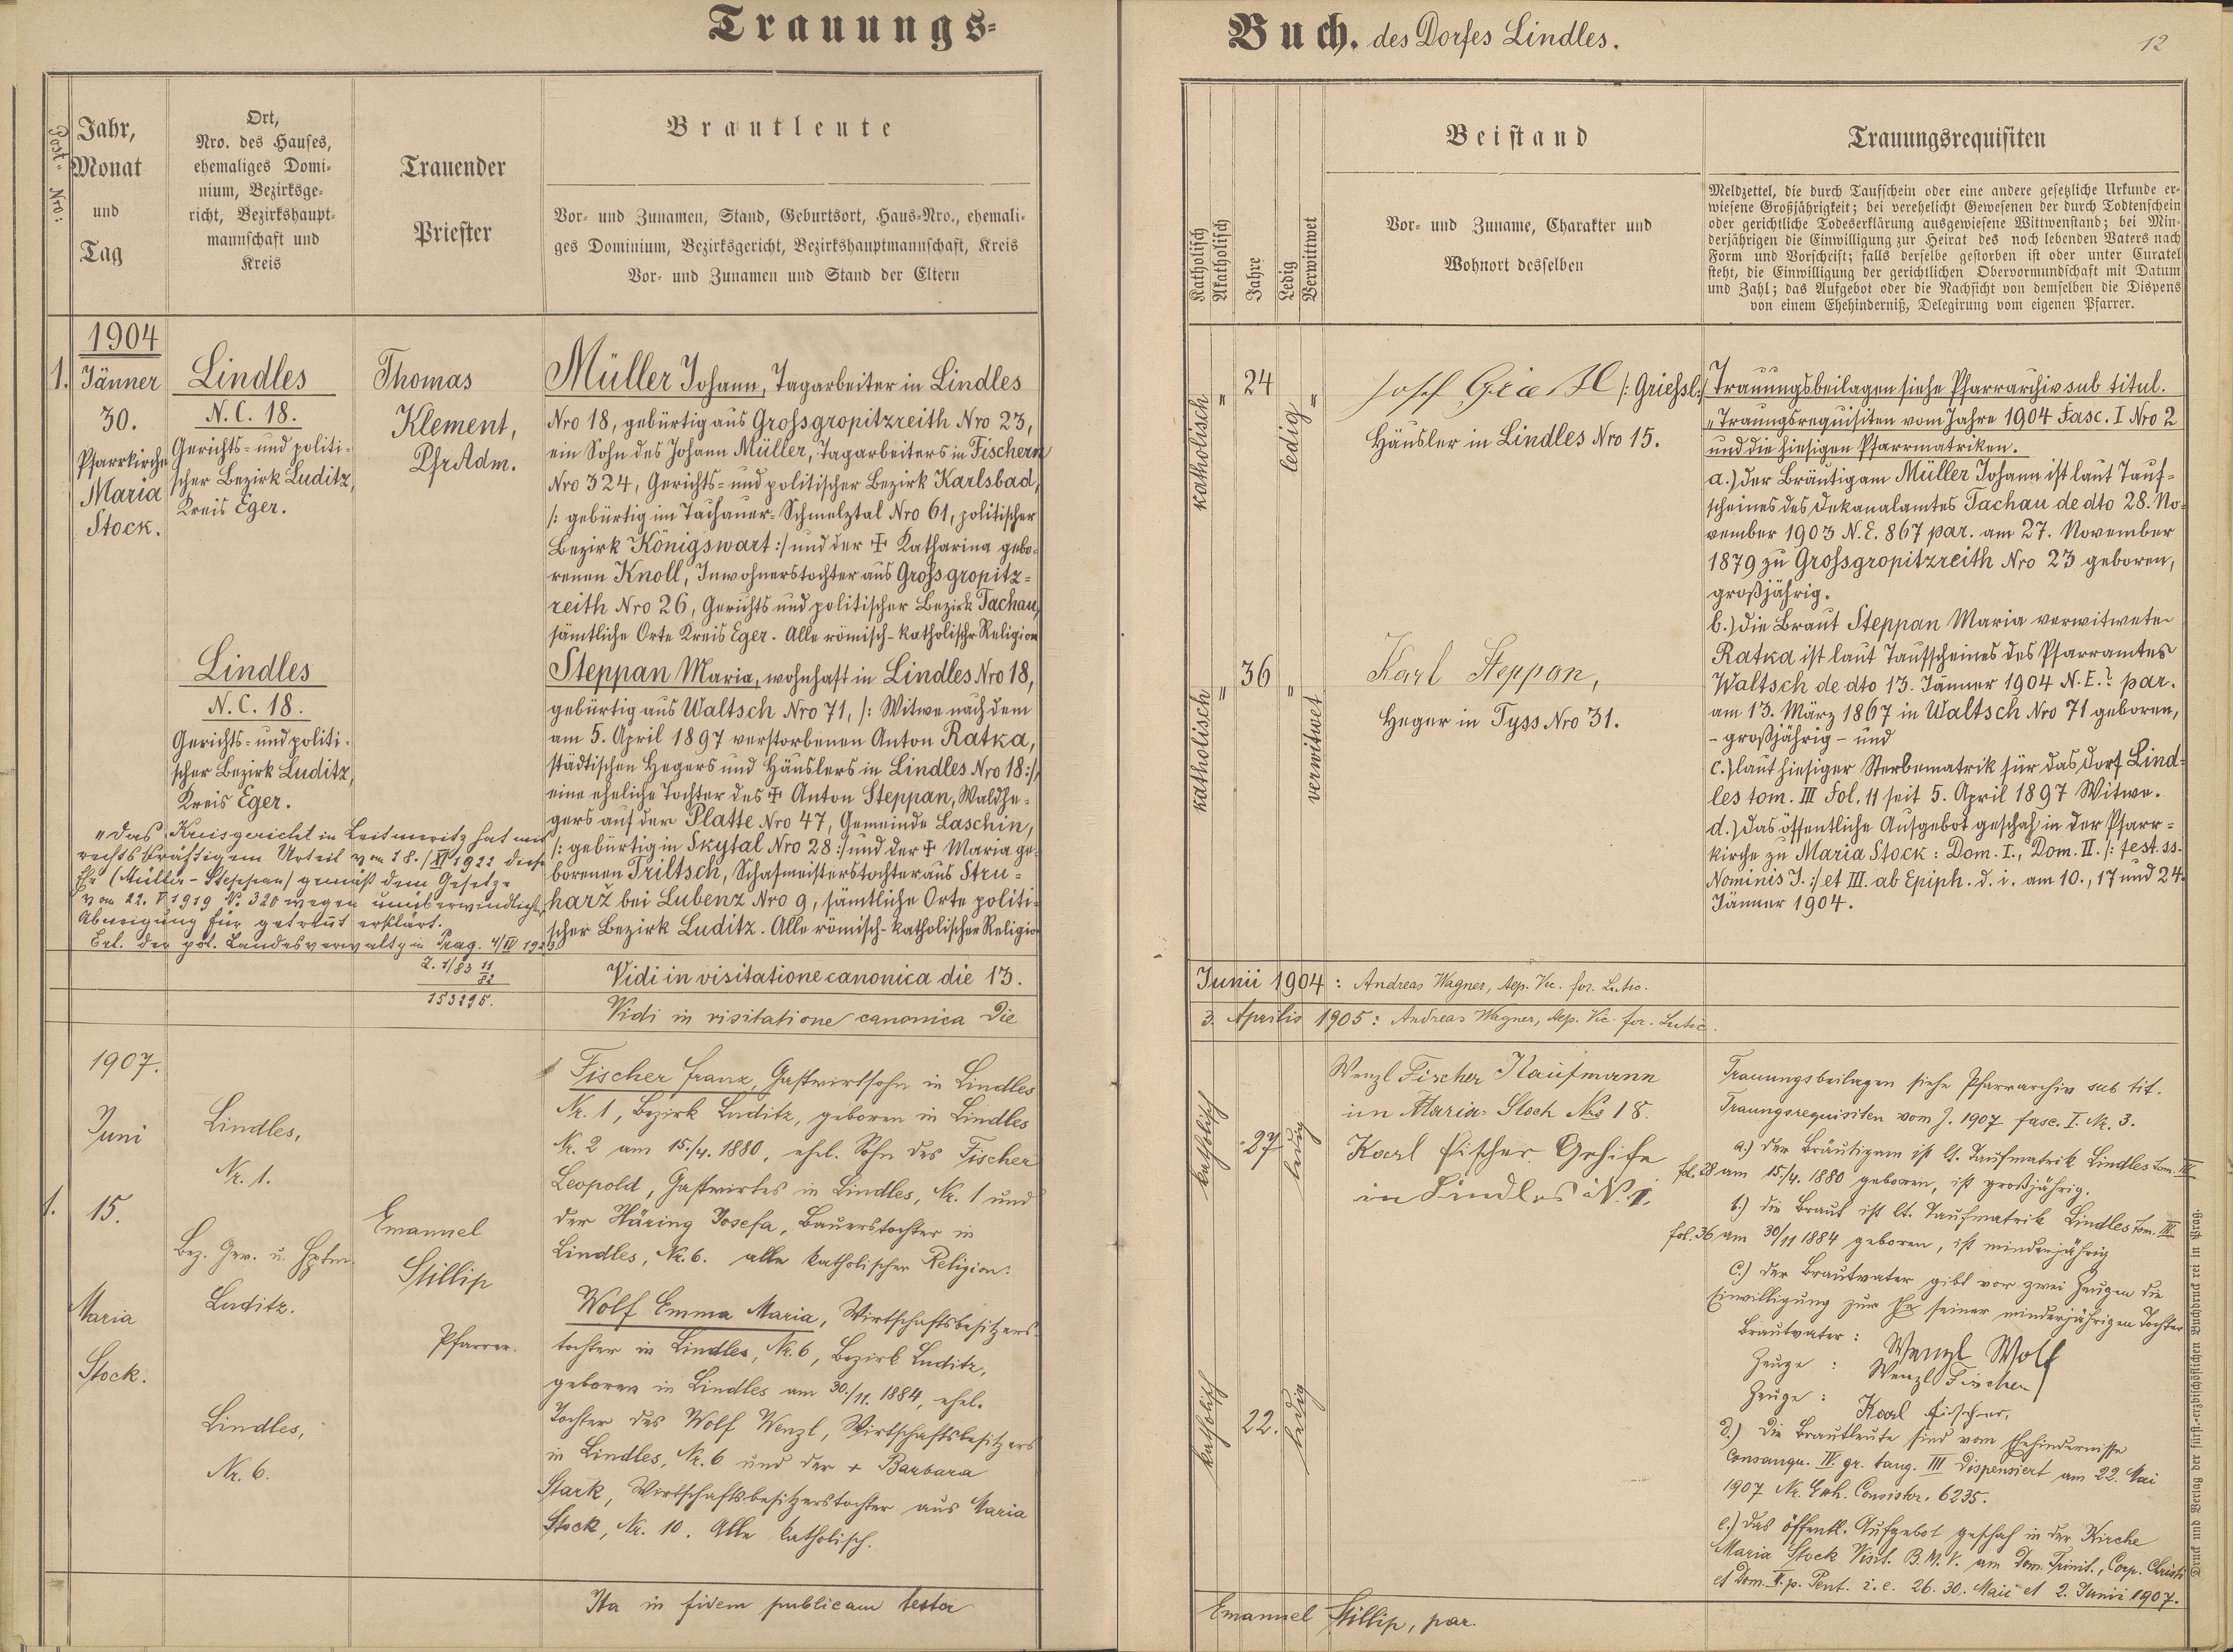 Trauungs-
Buch. des Dorfes Lindles.
12
Post- Nro:
Jahr,
Monat
und
Tag
Ort,
Nro. des Hauses,
ehemaliges Domi-
nium, Bezirksge-
richt, Bezirkshaupt-
mannschaft und
Kreis
Trauender
Priester
Brautleute
Vor- und Zunamen, Stand, Geburtsort, Haus-Nro., ehemali-
ges Dominium, Bezirksgericht, Bezirkshauptmannschaft, Kreis
Vor- und Zunamen und Stand der Eltern
Katholisch
Akatholisch
Jahre
Ledig
Verwittwet
Beistand
Vor- und Zuname, Charakter und
Wohnort desselben
Trauungsrequisiten
Meldzettel, die durch Taufschein oder eine andere gesetzliche Urkunde er-
wiesene Großjährigkeit; bei verehelicht Gewesenen der durch Todtenschein
oder gerichtliche Todeserklärung ausgewiesene Wittwenstand; bei Min-
derjährigen die Einwilligung zur Heirat des noch lebenden Vaters nach
Form und Vorschrift; falls derselbe gestorben ist oder unter Curatel
steht, die Einwilligung der gerichtlichen Obervormundschaft mit Datum
und Zahl; das Aufgebot oder die Nachsicht von demselben die Dispens
von einem Ehehinderniß, Delegirung vom eigenen Pfarrer.
1904
1.
Jänner
30.
Pfarrkirche
Maria
Stock.
Lindles
N.C. 18.
Gerichts- und politi-
scher Bezirk Luditz,
Kreis Eger.
Thomas
Klement,
PfrAdm.
Müller Johann, Tagarbeiter in Lindles
Nro 18, gebürtig aus Grossgropitzreith Nro 23,
ein Sohn des Johann Müller, Tagarbeiters in Fischern
Nro 324, Gerichts- und politischer Bezirk Karlsbad,
/: gebürtig im Tachauer-Schmelztal Nro 61, politischer
Bezirk Königswart :/ und der ✝ Katharina gebo-
renen Knoll, Inwohnerstochter aus Grossgropitz-
reith Nro 26, Gerichts und politischer Bezirk Tachau,
sämtliche Orte Kreis Eger. Alle römisch-katholischr Religion
katholisch
"
24
ledig
"
Josef /: Griehsl :/
Häusler in Lindles Nro 15.
Trauungsbeilagen siehe Pfarrarchiv sub titul.
„Trauungsrequisiten vom Jahre 1904 Fasc. I Nro 2
und die hiesigen Pfarrmatriken.
a.) Der Bräutigam Müller Johann ist laut Tauf-
scheines des Dekanalamtes Tachau de dto 28. No-
vember 1903 N.E. 867 par. am 27. November
1879 zu Grossgropitzreith Nro 23 geboren,
großjährig.
b.) Die Braut Steppan Maria verwitwete
Ratka ist laut Taufscheines des Pfarramtes
Waltsch de dto 13. Jänner 1904 N.E.? par.
am 13. März 1867 in Waltsch Nro 71 geboren,
- großjährig - und
c.) laut hiesiger Sterbematrik für das Dorf Lind-
les tom. III Fol. 11 seit 5. April 1897 Witwe.
d.) Das öffentliche Aufgebot geschah in der Pfarr-
kirche zu Maria Stock: Dom. I., Dom. II. /: fest. ss.
Nominis J. :/ et III. ab Epiph. d. i. am 10., 17 und 24.
Jänner 1904.
Lindles
N.C. 18.
Gerichts- und politi-
scher Bezirk Luditz,
Kreis Eger.
Steppan Maria, wohnhaft in Lindles Nro 18,
gebürtig aus Waltsch Nro 71, /: Witwe nach dem
am 5. April 1897 verstorbenen Anton Ratka,
städtischen Hegers und Häuslers in Lindles Nro 18 :/
eine eheliche Tochter des ✝ Anton Steppan, Waldhe-
gers auf der Platte Nro 47, Gemeinde Laschin,
/: gebürtig in Skytal Nro 28 :/ und der ✝ Maria ge-
borenen Triltsch, Schafmeisterstochter aus Stru-
harž bei Lubenz Nro 9, sämtliche Orte politi-
scher Bezirk Luditz. Alle römisch-katholischer Religion
katholisch
"
36
"
verwitwet
Karl Steppan,
Heger in Tyss Nro 31.
„Das Kreisgericht in Leitmeritz hat mit
rechtskräftigem Urteil vom 18./XI 1922 diese
Ehe (Müller-Steppan) gemäß dem Gesetze
vom 22. V 1919 N. 320 wegen unüberwindlicher
Abneigung für getrennt erklärt.
Erl. der pol. Landesverwaltg in Prag. 4/IV 1923.
Z. 1/83 11/82
153295.
Vidi in visitatione canonica die 13.
Junii 1904: Andreas Wagner, Aep. Vic. for. Lutic.
Vidi in visitatione canonica die
3. Aprilis 1905: Andreas Wagner, Aep. Vic. for. Lutic.
1907.
Juni
1.
15.
Maria
Stock.
Lindles,
Nr. 1.
Bez. Ger. u. Hptm
Luditz.
Emanuel
Stillip
Pfarrer.
Fischer Franz, Gastwirtsohn in Lindles
Nr. 1, Bezirk Luditz, geboren in Lindles
Nr. 2 am 15./4. 1880, ehel. Sohn des Fischer
Leopold, Gastwirtes in Lindles, Nr. 1 und
der Häring Josefa, Bauerstochter in
Lindles, Nr. 6. alle katholischer Religion.
katholisch
27
ledig
Wenzl Fischer Kaufmann
in Maria-Stock Nro 18.
Karl Fischer
in Lindles N. 1.
Trauungsbeilagen siehe Pfarrarchiv sub tit.
Trauungsrequisiten vom J. 1907 fasc. I. Nr. 3.
a.) der Bräutigam ist lt. Taufmatrik Lindles tom. III
fol. 28 am 15./4. 1880 geboren, ist großjährig.
b.) die Braut ist lt. Taufmatrik Lindles tom. III
fol. 36 am 30/11 1884 geboren, ist minderjährig
c.) der Brautvater gibt vor zwei Zeugen die
Einwilligung zur Ehe seiner minderjährigen Tochter
Brautvater: Wenzl Wolf
Zeuge: Wenzl Fischer
Zeuge: Karl Fischer,
d.) die Brautleute sind vom Ehehindernisse
consangu. IV. gr. tang. III dispensiert am 22. Mai
1907 Nr. Exh. Consistor. 6235.
e.) das öffentl. Aufgebot geschah in der Kirche
Maria Stock Visit. B.M.V. am Dom. Trinit., Corp. Christi
et Dom. II. p. Pent. i. e. 26. 30. Maii et 2. Junii 1907.
Lindles,
Nr. 6.
Wolf Emma Maria, Wirtschaftsbesitzers-
tochter in Lindles, Nr. 6, Bezirk Luditz,
geboren in Lindles am 30./11. 1884, ehel.
Tochter des Wolf Wenzl, Wirtschaftsbesitzers
in Lindles, Nr. 6 und der + Barbara
Stark, Wirtschaftsbesitzerstochter aus Maria
Stock, Nr. 10. Alle katholisch.
katholisch
22.
ledig
Ita in fidem publicam testor
Emanuel Stillip, par.
Druck und Verlag der fürst.-erzbischöflichen Buchdruckerei in Prag.